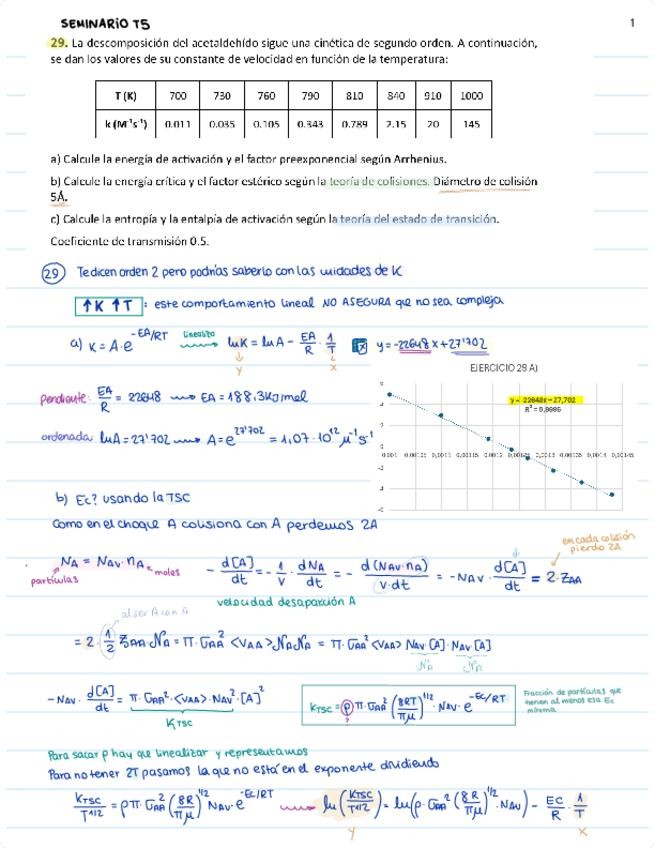 SEMINARIO T5
1
29. La descomposición del acetaldehído sigue una cinética de segundo orden. A continuación,
se dan los valores de su constante de velocidad en función de la temperatura:
T (K) 700 730 760 790 810 840 910 1000
k (M⁻¹s⁻¹) 0.011 0.035 0.105 0.343 0.789 2.15 20 145
a) Calcule la energía de activación y el factor preexponencial según Arrhenius.
b) Calcule la energía crítica y el factor estérico según la teoría de colisiones. Diámetro de colisión
5Å.
c) Calcule la entropía y la entalpía de activación según la teoría del estado de transición.
Coeficiente de transmisión 0.5.
29 Te dicen orden 2 pero podrías saberlo con las unidades de K
↑K ↑T : este comportamiento lineal NO ASEGURA que no sea compleja
a) K = A·e^(-EA/RT) linealizo ln K = ln A - EA/R · 1/T y = -22648 x + 27'702
y x
EJERCICIO 29 A)
y = -22648x + 27,702
pendiente: EA/R = 22648 → EA = 188,3 KJ/mol
ordenada: ln A = 27'702 → A = e^(27'702) = 1,07·10¹² M⁻¹s⁻¹
b) Ec? usando la TSC
Como en el choque A colisiona con A perdemos 2A
en cada colisión
pierdo 2A
NA = NAV·nA moles - d[A]/dt = - 1/V · dNA/dt = - d(NAV·nA)/V·dt = -NAV · d[A]/dt = 2·ZAA
partículas
velocidad desaparición A
al ser A con A
= 2·1/2 ZAA·NA = π·σAA² <VAA> NA NA = π·σAA² <VAA> NAV·[A]·NAV·[A]
NA NA
-NAV · d[A]/dt = π·σAA²·<VAA>·NAV²·[A]²
KTSC
KTSC = p π·σAA² (8RT/πμ)^(1/2)·NAV·e^(-Ec/RT)
?
Fracción de partículas que
tienen al menos esa Ec
mínima
Para sacar p hay que linealizar y representamos
Para no tener 2T pasamos la que no está en el exponente dividiendo
KTSC/T^(1/2) = pπ·σAA² (8R/πμ)^(1/2) NAV·e^(-Ec/RT) → ln(KTSC/T^(1/2)) = ln(p·σAA² (8R/πμ)^(1/2)·NAV) - EC/R · 1/T
y x